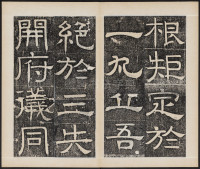 根矩定於
一九丘吾
絕於三失
開府儀同